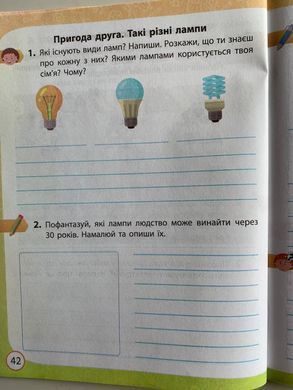 Пригода друга. Такі різні лампи
1. Які існують види ламп? Напиши. Розкажи, що ти знаєш
про кожну з них? Якими лампами користується твоя
сім'я? Чому?
2. Пофантазуй, які лампи людство може винайти через
30 років. Намалюй та опиши їх.
42